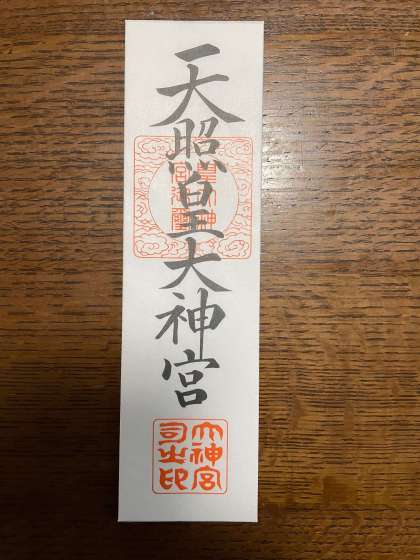 天照皇大神宮
皇大神宮御璽
大神宮司之印